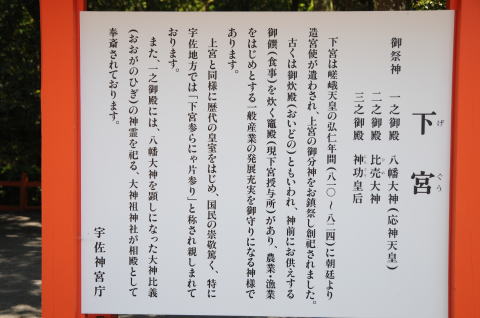 下宮
げぐう
御祭神 一之御殿 八幡大神(応神天皇)
二之御殿 比売大神
三之御殿 神功皇后
下宮は嵯峨天皇の弘仁年間(八一〇～八二四)に朝廷より
造宮使が遣わされ、上宮の御分神をお鎮祭し創祀されました。
古くは御炊殿(おいどの)ともいわれ、神前にお供えする
御饌(食事)を炊く竈殿(現下宮授与所)があり、農業・漁業
をはじめとする一般産業の発展充実を御守りになる神様で
あります。
上宮と同様に歴代の皇室をはじめ、国民の崇敬篤く、特に
宇佐地方では「下宮参らにゃ片参り」と称され親しまれて
おります。
また、一之御殿には、八幡大神を顕しになった大神比義
(おおがのひぎ)の神霊を祀る、大神祖神社が相殿として
奉斎されております。
宇佐神宮庁